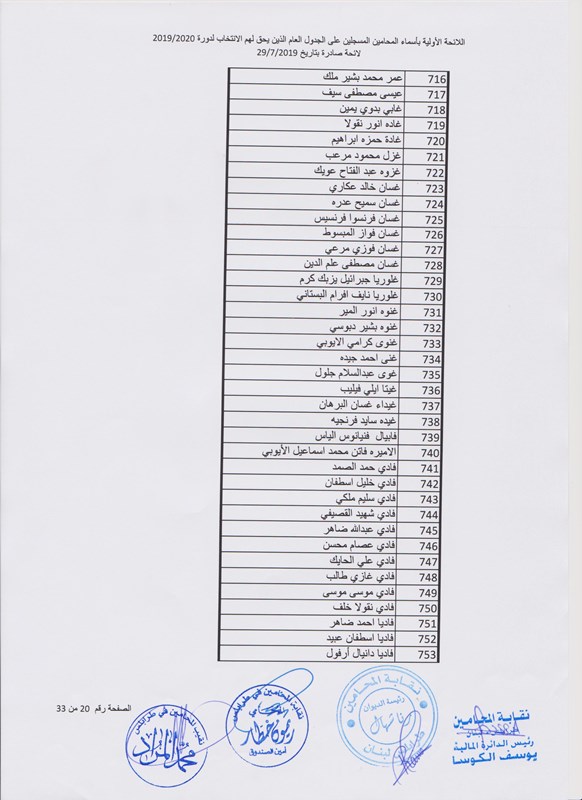 اللائحة الأولية بأسماء المحامين المسجلين على الجدول العام الذين يحق لهم الانتخاب لدورة 2019/2020
لائحة صادرة بتاريخ 29/7/2019
716 عمر محمد بشير ملك
717 عيسى مصطفى سيف
718 غابي بدوي يمين
719 غاده انور نقولا
720 غادة حمزه ابراهيم
721 غزل محمود مرعب
722 غزوه عبد الفتاح عويك
723 غسان خالد عكاري
724 غسان سميح عدره
725 غسان فرنسوا فرنسيس
726 غسان فواز المبسوط
727 غسان فوزي مرعي
728 غسان مصطفى علم الدين
729 غلوريا جبرائيل يزبك كرم
730 غلوريا نايف افرام البستاني
731 غنوه انور المير
732 غنوه بشير دبوسي
733 غنوى كرامي الايوبي
734 غنى احمد جيده
735 غوى عبدالسلام جلول
736 غيتا ايلي فيليب
737 غيداء غسان البرهان
738 غيده سايد فرنجيه
739 فابيال فنيانوس الياس
740 الاميره فاتن محمد اسماعيل الأيوبي
741 فادي حمد الصمد
742 فادي خليل اسطفان
743 فادي سليم ملكي
744 فادي شهيد القصيفي
745 فادي عبدالله ضاهر
746 فادي عصام محسن
747 فادي علي الحايك
748 فادي غازي طالب
749 فادي موسى موسى
750 فادي نقولا خلف
751 فاديا احمد ضاهر
752 فاديا اسطفان عبيد
753 فاديا دانيال أرفول
نقابة المحامين
رئيس الدائرة المالية
يوسف الكوسا
نقابة المحامين
رئيسة الديوان
لبنان
نقابة المحامين في طرابلس
المحامي
ريمون خطار
أمين الصندوق
نقيب المحامين في طرابلس
محمد المراد
الصفحة رقم 20 من 33